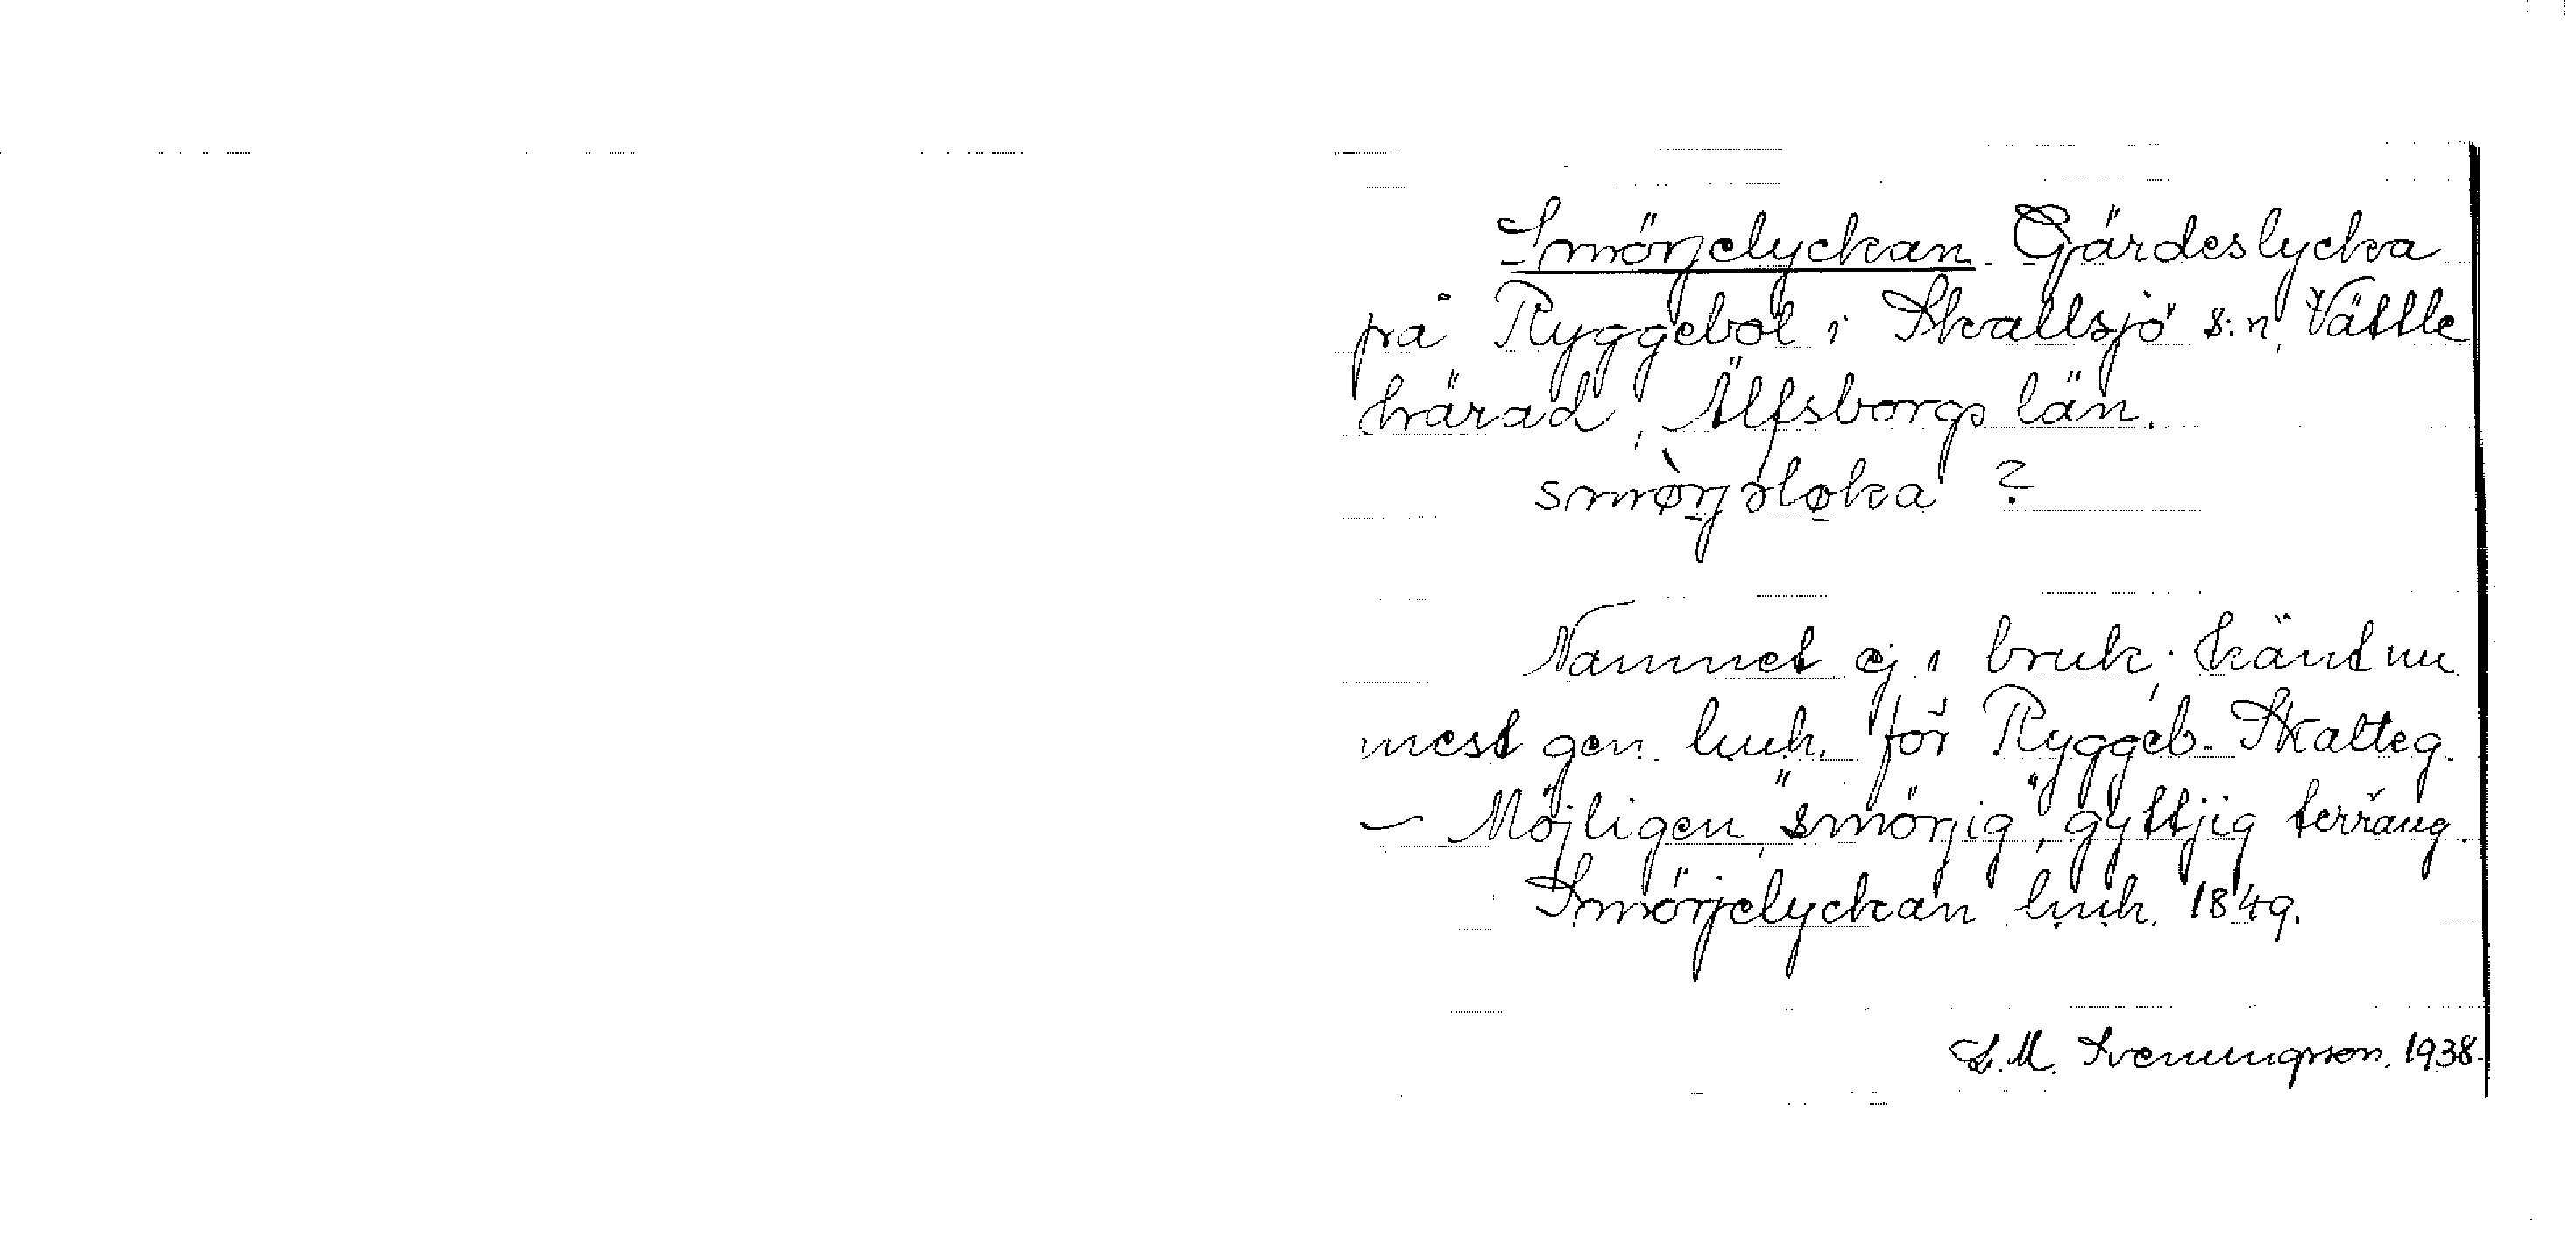 Smörjelyckan. Gärdeslycka
på Ryggebol i Skallsjö s:n, Vättle
härad, Älfsborgs län.
smø̀rjəløka ?
Namnet ej i bruk; känt nu
mest gen. luh. för Ryggeb. Skatteg.
– Möjligen "smörjig", gyttjig terräng.
Smörjelyckan luh. 1849.
S. M. Svenungsson. 1938.